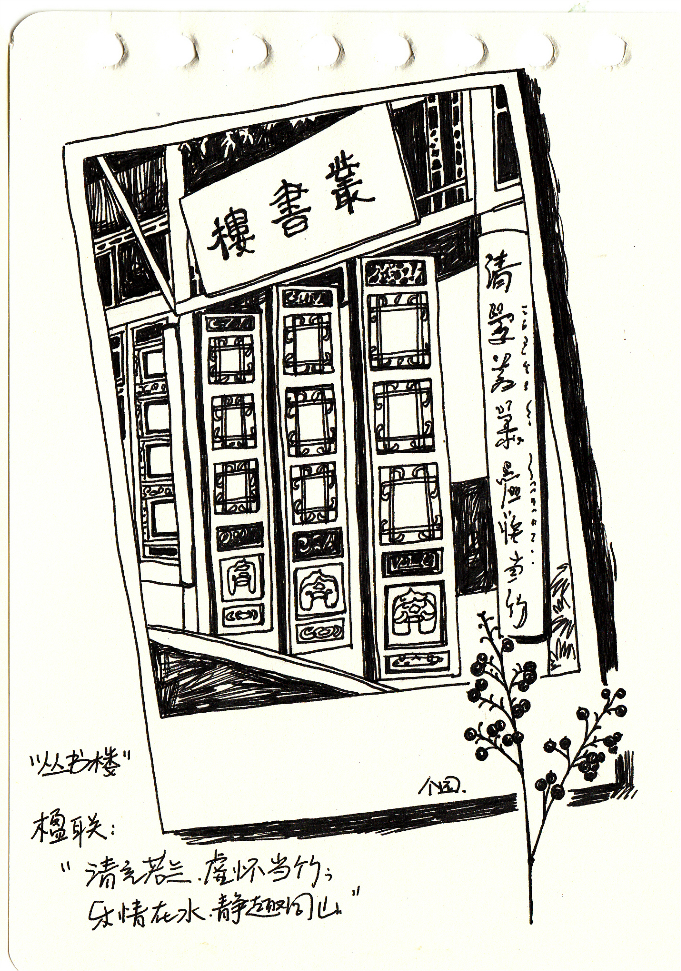 叢書樓
清若蘭虛懷當竹
个园.
"丛书楼"
楹联:
"清若兰.虚怀当竹;
乐情在水.静趣同山"